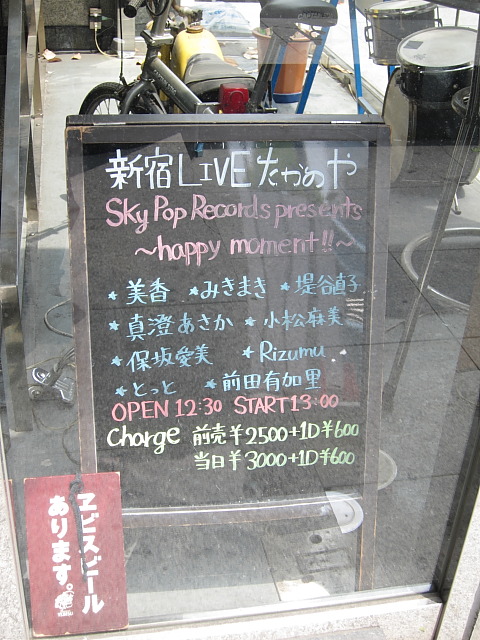 新宿LIVEたかのや
Sky Pop Records presents
~happy moment!!~
* 美香 * みきまき * 堤谷直子
* 真澄あさか * 小松麻美
* 保坂愛美 * Rizumu
* とっと * 前田有加里
OPEN 12:30 START 13:00
Charge 前売¥2500+1D¥600
当日¥3000+1D¥600
ヱビスビール
あります。